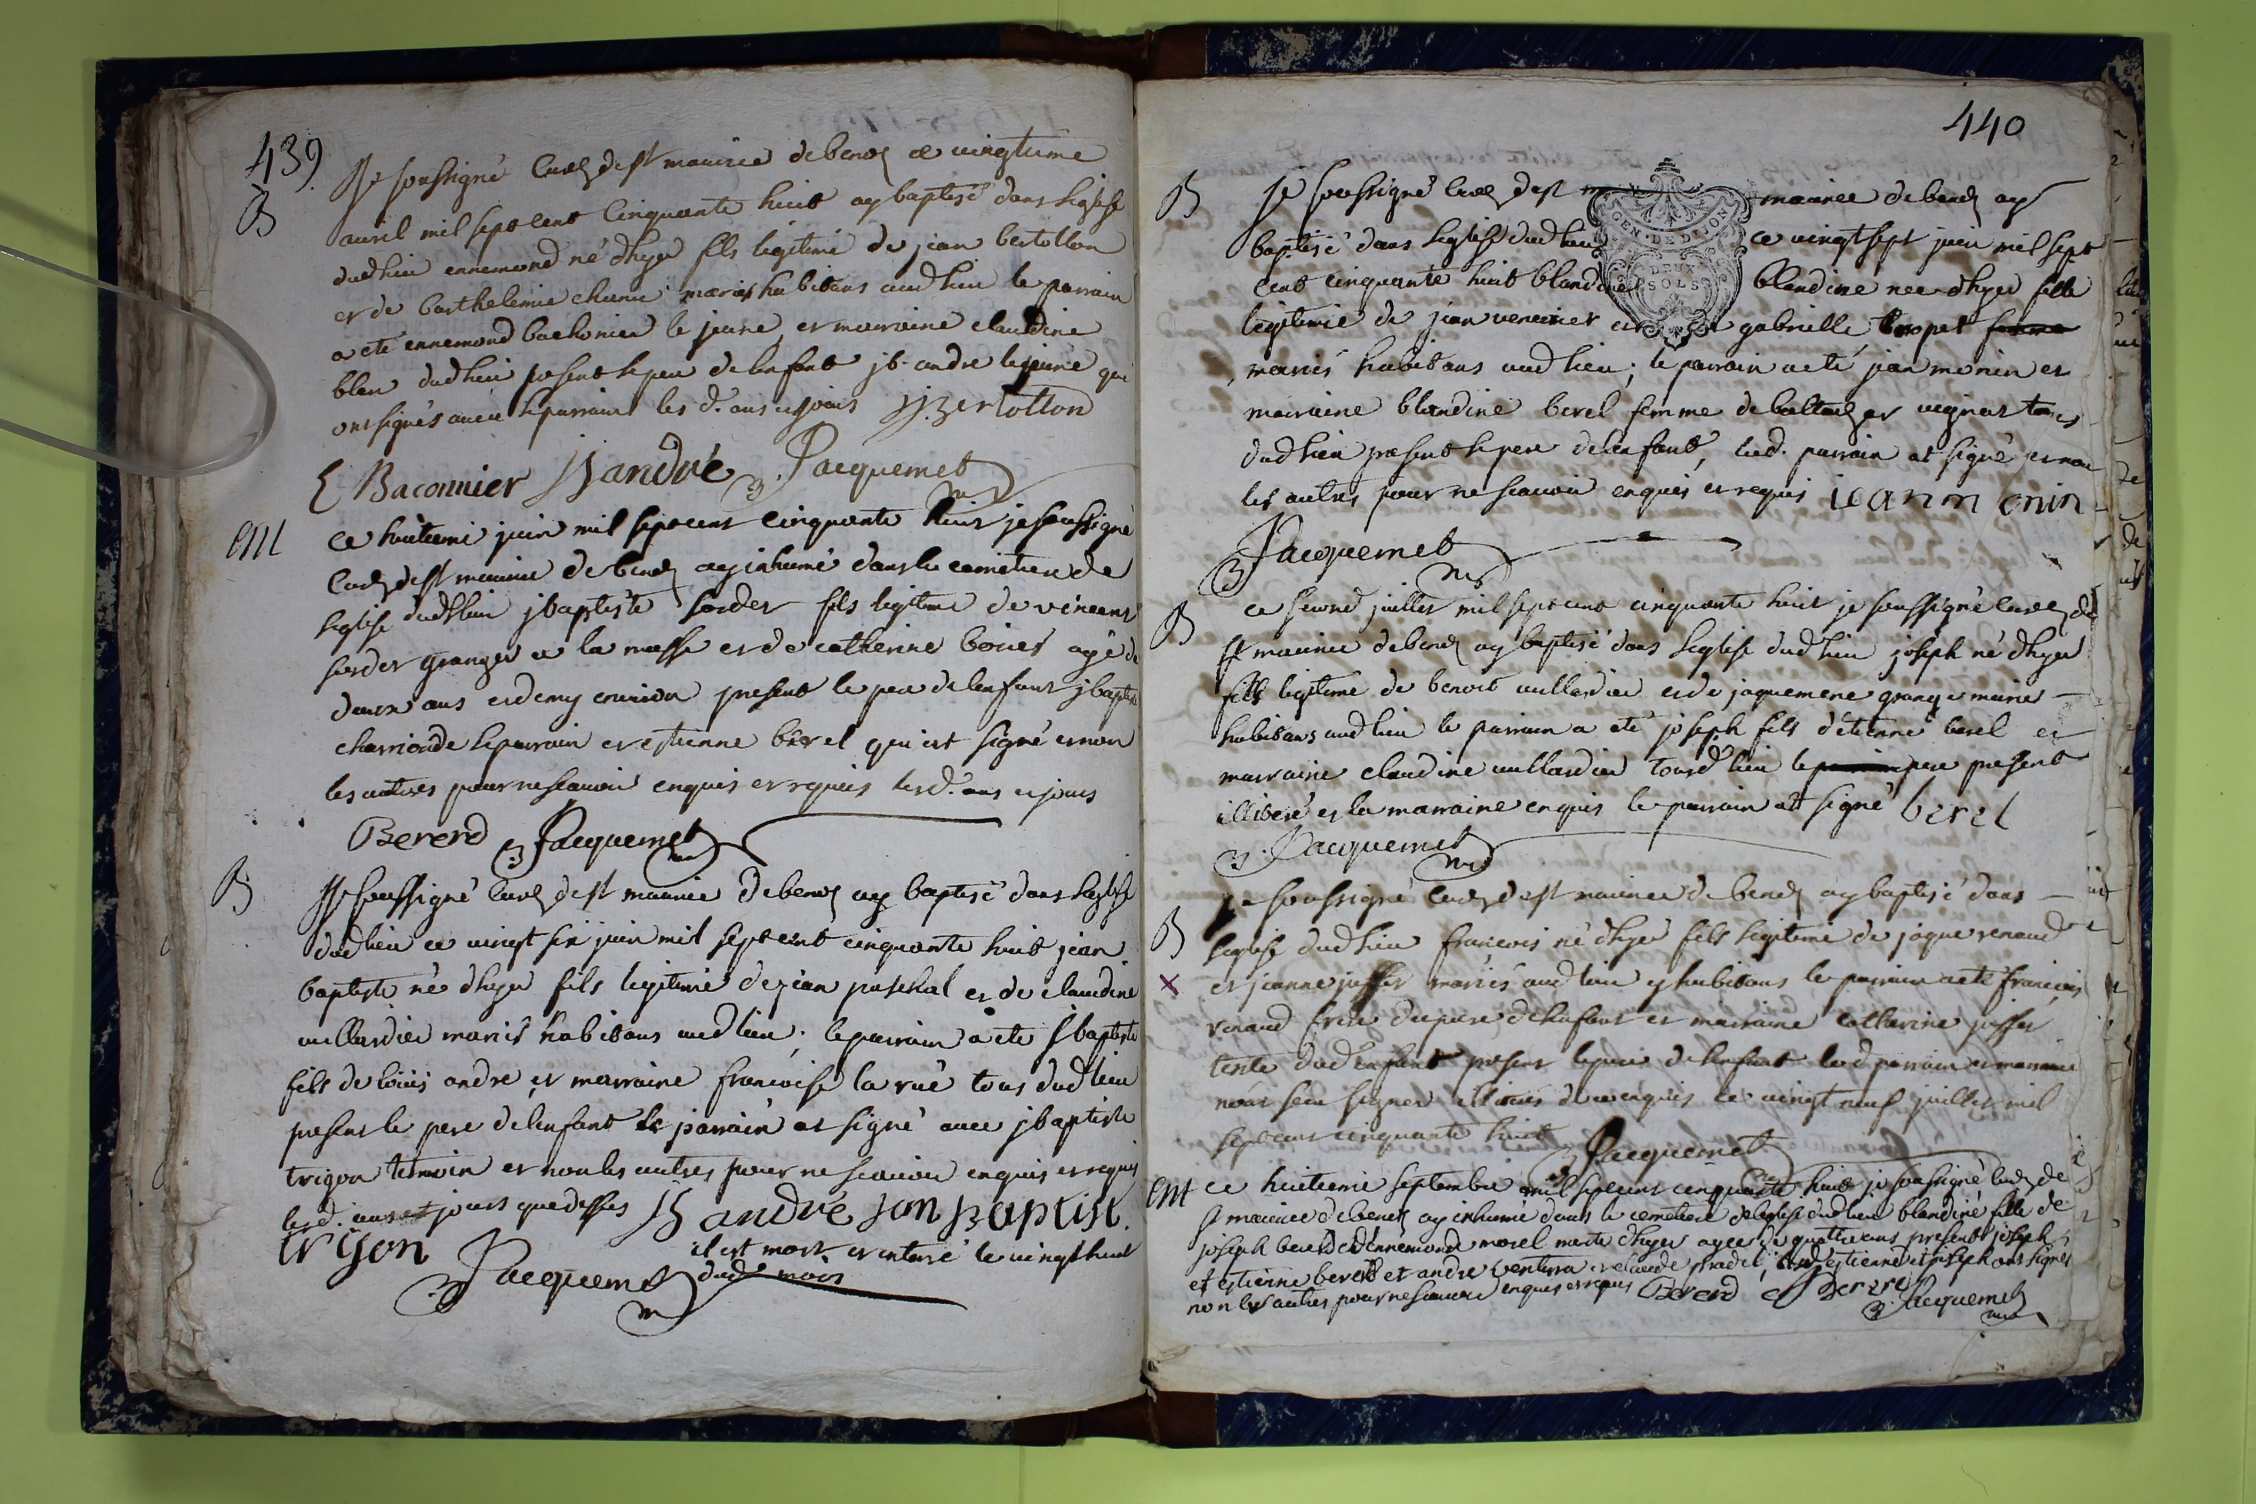 439
B
Je soussigné curé de st maurice de benoz ce vingtieme
auril mil sept cent cinquante huit ay baptisé dans leglise
dud lieu ennemond né dhyer fils legitime de jean bertollon
et de barthelemie mariés habitans aud lieu le parrain
a eté ennemond bachonier le jeune et marraine claudine
blan dud lieu present le pere de lenfant jb. andre le jeune qui
ont signés auec le parrain les d. ans et jours JJ. Bertollon
E Baconnier JB andré Jacquemet
em
ce huitieme juin mil sept cent cinquante huit je soussigné
curé de st maurice de benoz ay inhumé dans le cemetiere de
leglise dud lieu jbaptiste serder fils legitime de vincent
serder granger a la masse et de catherine agé de
deux ans et demy enuiron present le pere de lenfant jbaptiste
le parrain et estienne berel qui at signé et non
les autres pour ne scauoir enquis et requis les d. ans et jours
Bererd Jacquemet
B
Je soussigné curé de st maurice de benoz ay baptisé dans leglise
dud lieu ce vingt six juin mil sept cent cinquante huit jean
baptiste né dhyer fils legitime de jean paschal et de claudine
uullardier mariés habitans aud lieu. le parrain a ete jbaptiste
fils de louis andre et marraine francoise la rue tous dud lieu
present le pere de lenfant le parrain at signé auec jbaptiste
trigon temoin et non les autres pour ne scauoir enquis et requis
les d. ans et jours que dessus JB andré jan Baptist.
trigon il est mort et enteré le vingt huit
Jacquemet dud. mois
440
B
Je soussigné curé de st maurice de benoz ay
GEN. DE LYON
DEUX SOLS
baptisé dans leglise dud lieu ce vingt sept juin mil sept
cent cinquante huit blandine blandine nee dhyer fille
legitime de jean et de gabrielle
mariés habitans aud lieu; le parrain a eté jean monin et
marraine blandine berel femme de tous
dud lieu present le pere de lenfant, led. parrain at signé et non
les autres pour ne scauoir enquis et requis iean m onin
Jacquemet
B
ce second juillet mil sept cent cinquante huit je soussigné curé de
st maurice de benoz ay baptisé dans leglise dud lieu joseph né dhyer
fils legitime de benoit uullardier et de jaquemete grange mariés
habitans aud lieu le parrain a eté joseph fils detienne berel et
marraine claudine uullardier tous d. lieu le pere present
illiteré et la marraine enquis le parrain at signé berel
Jacquemet
B
Je soussigné curé de st maurice de benoz ay baptisé dans
leglise dud lieu francois né dhyer fils legitime de jaque renaud
x
et jeanne mariés aud lieu y habitans le parrain a eté francois
renaud frere du pere de lenfant et marraine catherine
tente dud enfant present le pere de lenfant led parrain et marraine
nont sceu signer illiterés de ce enquis ce vingt neuf juillet mil
sept cent cinquante huit Jacquemet
em
ce huitieme septembre mil sept cent cinquante huit je soussigné curé de
st maurice de benoz ay inhumé dans le cemetiere de leglise dud lieu blandine fille de
joseph bererd et dennemonde morel morte dhyer agee de quatre ans present joseph
et estienne bererd et andre ventura et claude pradel, lesd estienne et joseph ont signés
non les autres pour ne scauoir enquis et requis Bererd Bererd
Jacquemet